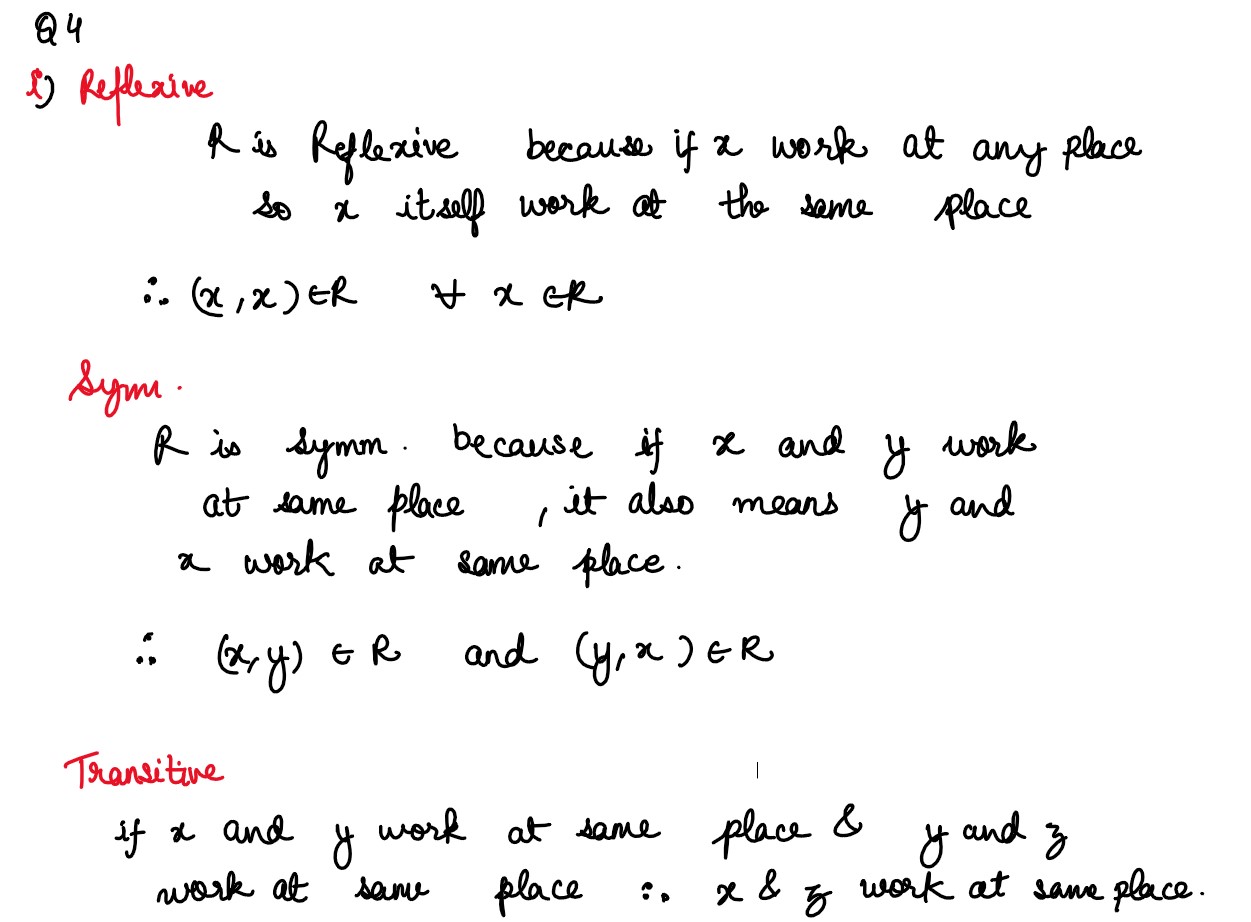 Q4
i) Reflexive
R is Reflexive because if x work at any place
so x itself work at the same place
∴ (x,x) ∈ R ∀ x ∈ R
Symm.
R is symm. because if x and y work
at same place, it also means y and
x work at same place.
∴ (x,y) ∈ R and (y,x) ∈ R
Transitive
if x and y work at same place & y and z
work at same place ∴ x & z work at same place.